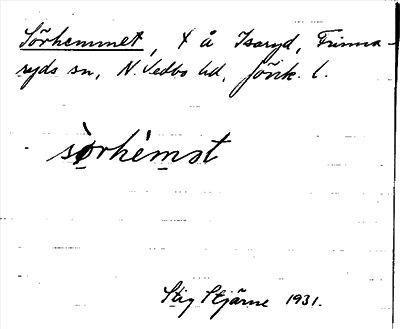 Sörhemmet, x å Isaryd, Frinna-
ryds sn, N. Vedbo hd, Jönk. l.
sò̤rhèm̤ət
Stig Stjärne 1931.